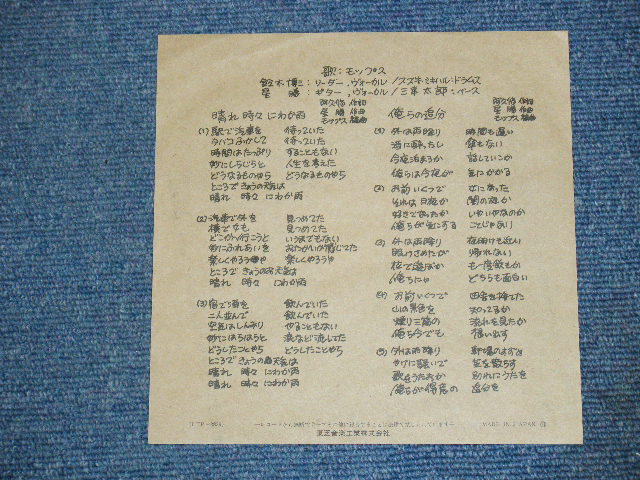 歌：モップス
鈴木博三：リーダー、ヴォーカル／スズキミキハル：ドラムス
星 勝：ギター、ヴォーカル／三幸太郎：ベース
晴れ 時々 にわか雨
阿久悠 作詞
星 勝 作曲
モップス 編曲
(1) 駅で汽車を 待っていた
タバコふかして 待っていた
時間はたっぷり することもない
妙にしらじらと 人生を考えた
どうなるものやら どうなるものやら
ところで きょうの天気は
晴れ 時々 にわか雨
(2) 汽車で外を 見つめてた
横で女も 見つめてた
どこかへ行こうと いうまでもない
妙にふれあいを おたがいが感じてた
楽しくやろうや 楽しくやろうや
ところで きょうのお天気は
晴れ 時々 にわか雨
(3) 宿で酒を 飲んでいた
二人並んで 飲んでいた
空気はしんみり やることもない
妙にほろほろと 涙など流してた
どうしたことやら どうしたことやら
ところで きょうの天気は
晴れ 時々 にわか雨
俺らの追分
阿久悠 作詞
星 勝 作曲
モップス 編曲
(1) 外は雨降り 時間も遅い
酒に酔ったし 傘もない
今夜泊まろか 話していこか
俺らは今夜が 気にかかる
(2) お前いくつで 女になった
それは月夜か 闇の夜か
好きであったか いやいやなのか
俺らが気にする ことじゃない
(3) 外は雨降り 夜明けも近い
酔いさめたか 帰れない
枕で遊ぼか も一度飲もか
俺らにゃ どちらも面白い
(4) お前いくつで 田舎を捨てた
山の景色を 知ってるか
煙り三筋の 流れを見たか
俺ら今でも 思い出す
(5) 外は雨降り
やけに騒いで 空を散らす
歌をうたおか 別れにうたを
俺らが得意の 追分を
東芝音楽工業株式会社
MADE IN JAPAN